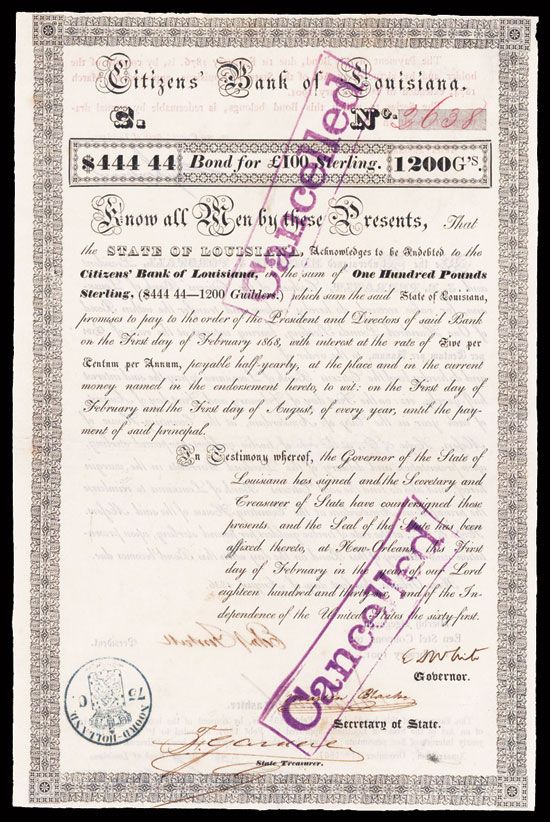 Citizens' Bank of Louisiana.
S. No. 3638
$444 44 Bond for £100 Sterling. 1200G'S.
Know all Men by these Presents, That
the STATE OF LOUISIANA, Acknowledges to be Indebted to the
Citizens' Bank of Louisiana, in the sum of One Hundred Pounds
Sterling, ($444 44—1200 Guilders.) which sum the said State of Louisiana,
promises to pay to the order of the President and Directors of said Bank
on the First day of February 1868, with interest at the rate of Five per
Centum per Annum, payable half-yearly, at the place and in the current
money named in the endorsement hereto, to wit: on the First day of
February and the First day of August, of every year, until the pay-
ment of said principal.
In Testimony whereof, the Governor of the State of
Louisiana has signed and the Secretary and
Treasurer of State have countersigned these
presents, and the Seal of the State has been
affixed thereto, at New-Orleans, this First
day of February in the year of our Lord
eighteen hundred and thirty and of the In-
dependence of the United States the sixty-first.
Cancelled
Cancelled
E D White
Governor.
Blache
Secretary of State.
75 C
NOORD-HOLLAND
F. Gardere
State Treasurer.